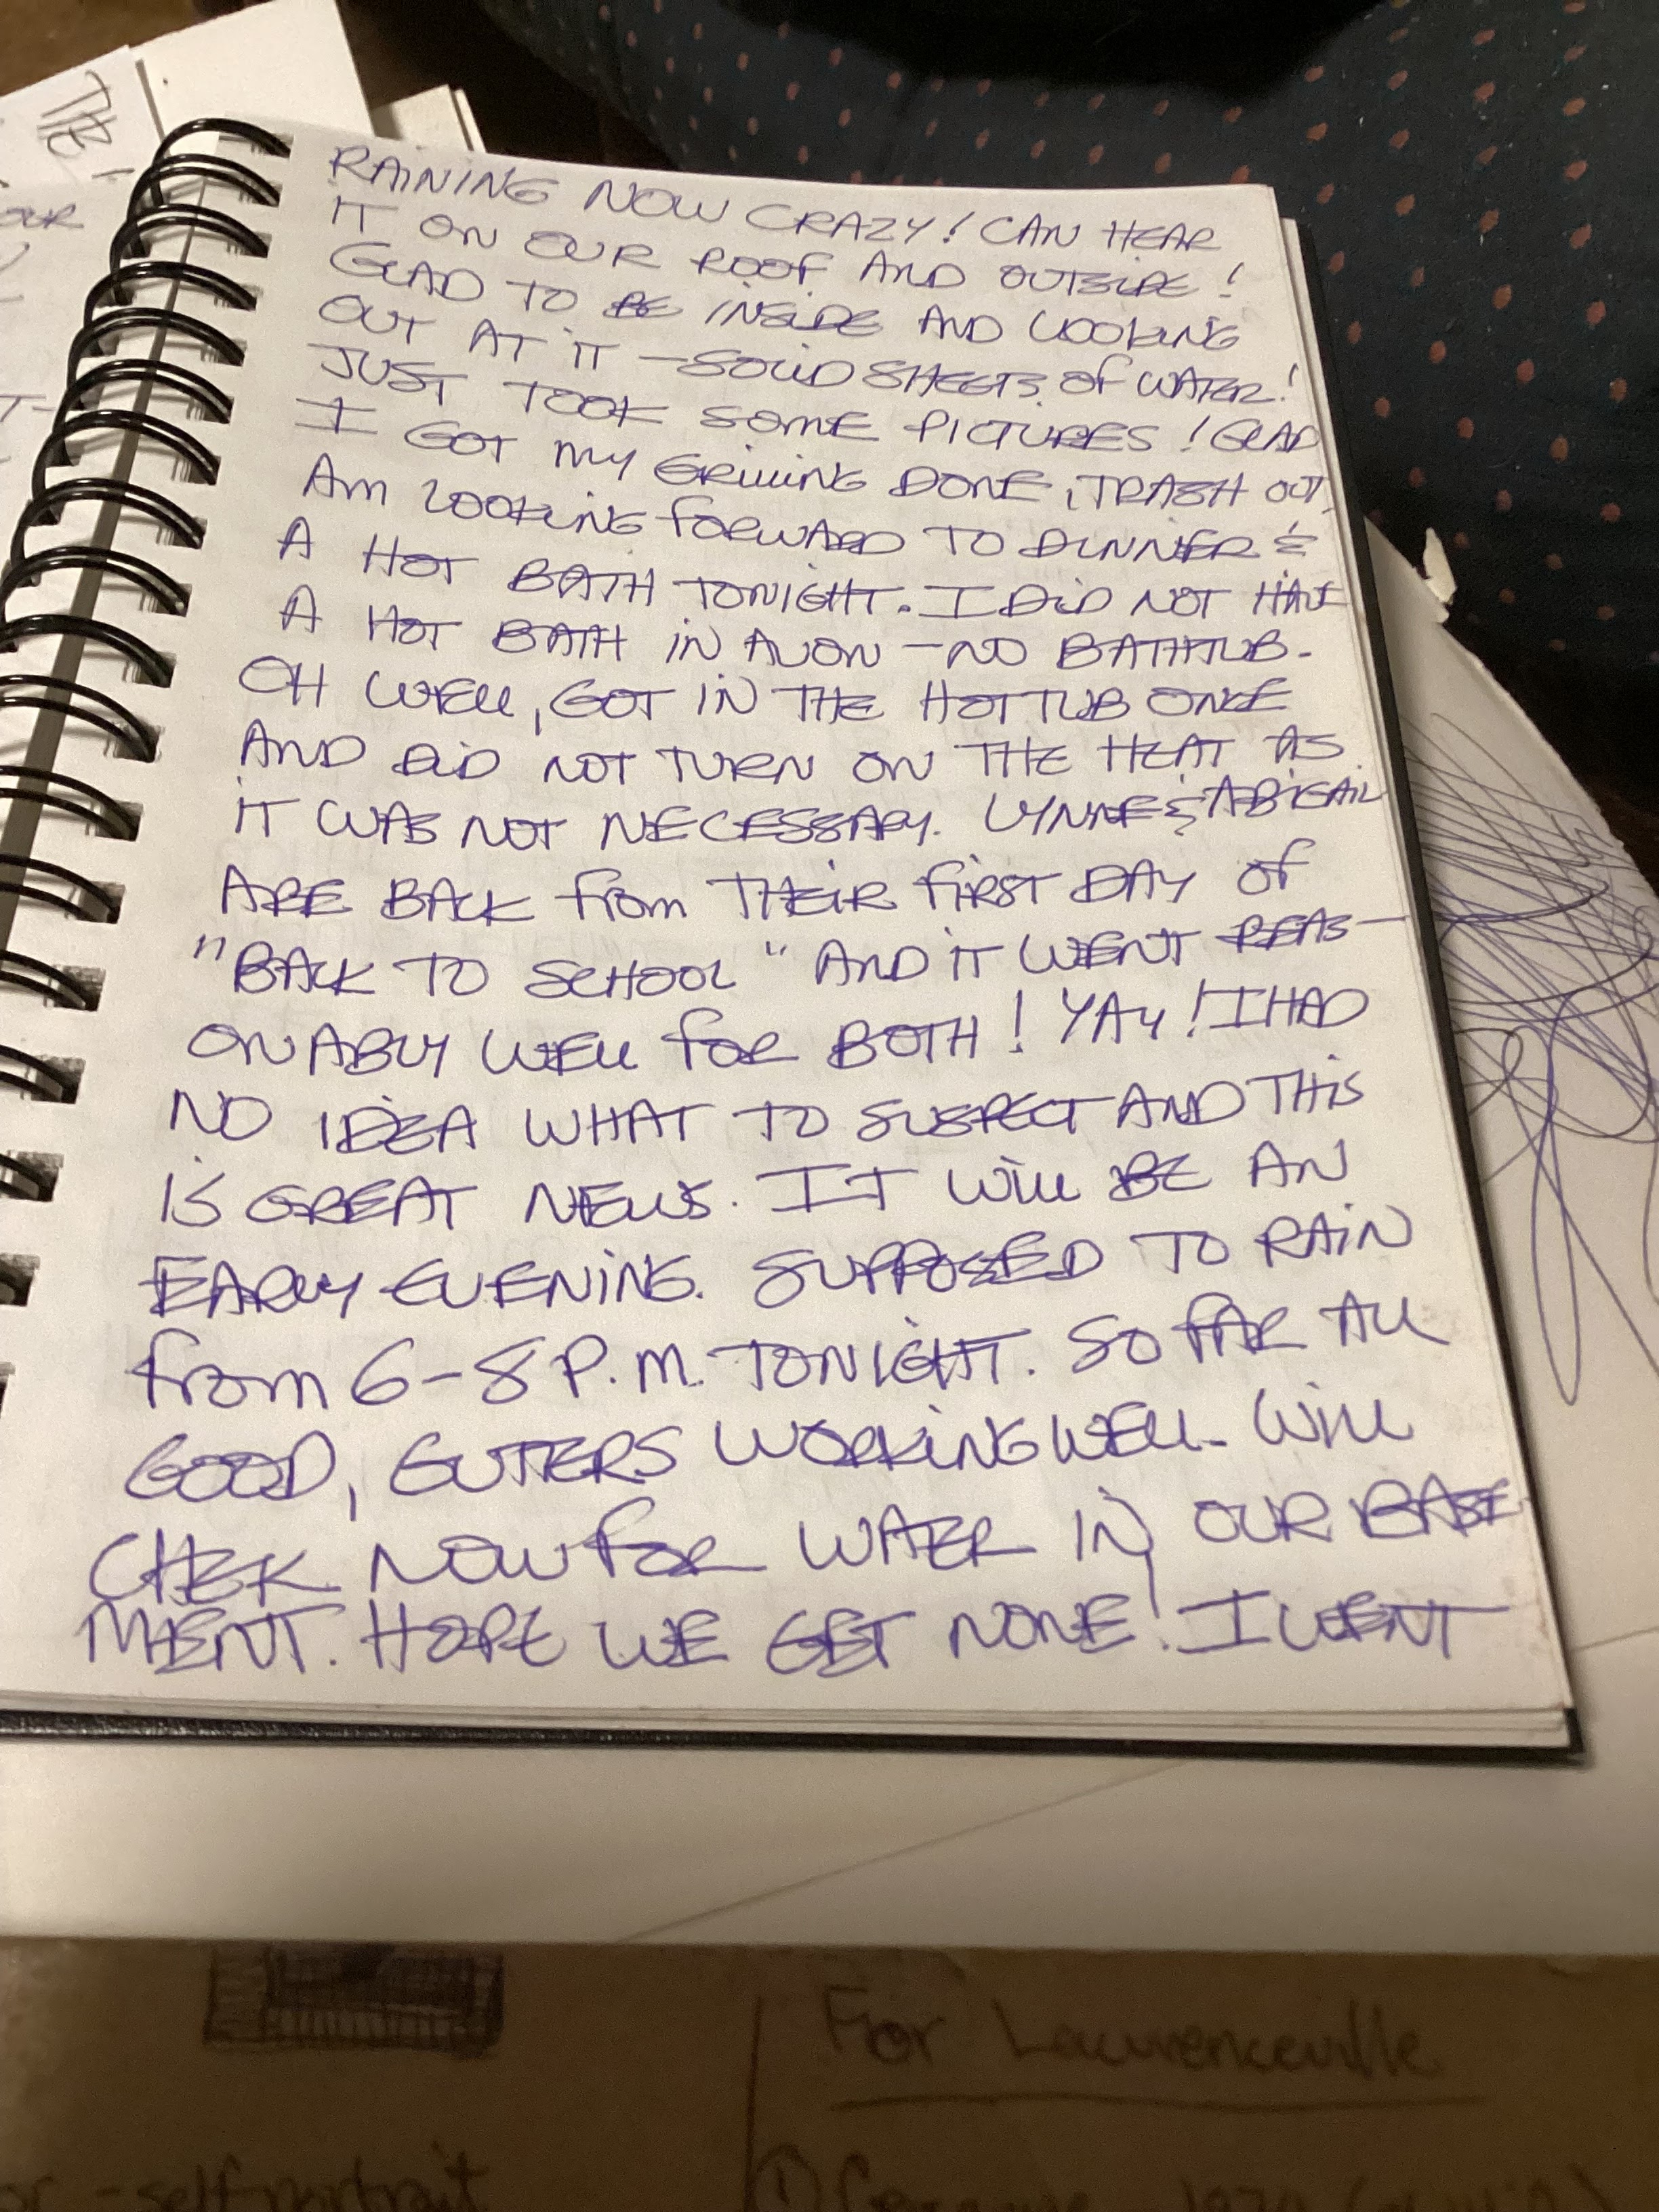 THE
OUR
RAINING NOW CRAZY! CAN HEAR
IT ON OUR ROOF AND OUTSIDE!
GLAD TO BE INSIDE AND LOOKING
OUT AT IT - SOLID SHEETS OF WATER!
JUST TOOK SOME PICTURES! GLAD
I GOT MY GRILLING DONE, TRASH OUT.
AM LOOKING FORWARD TO DINNER &
A HOT BATH TONIGHT. I DID NOT HAVE
A HOT BATH IN AVON - NO BATHTUB.
OH WELL, GOT IN THE HOT TUB ONCE
AND DID NOT TURN ON THE HEAT AS
IT WAS NOT NECESSARY. LYNNE & ABIGAIL
ARE BACK FROM THEIR FIRST DAY OF
"BACK TO SCHOOL" AND IT WENT REAS-
ONABLY WELL FOR BOTH! YAY! I HAD
NO IDEA WHAT TO SUSPECT AND THIS
IS GREAT NEWS. IT WILL BE AN
EARLY EVENING. SUPPOSED TO RAIN
FROM 6-8 P.M. TONIGHT. SO FAR ALL
GOOD, GUTTERS WORKING WELL. WILL
CHEK NOW FOR WATER IN OUR BASE
MENT. HOPE WE GET NONE! I WENT
For Lawrenceville
- self portrait